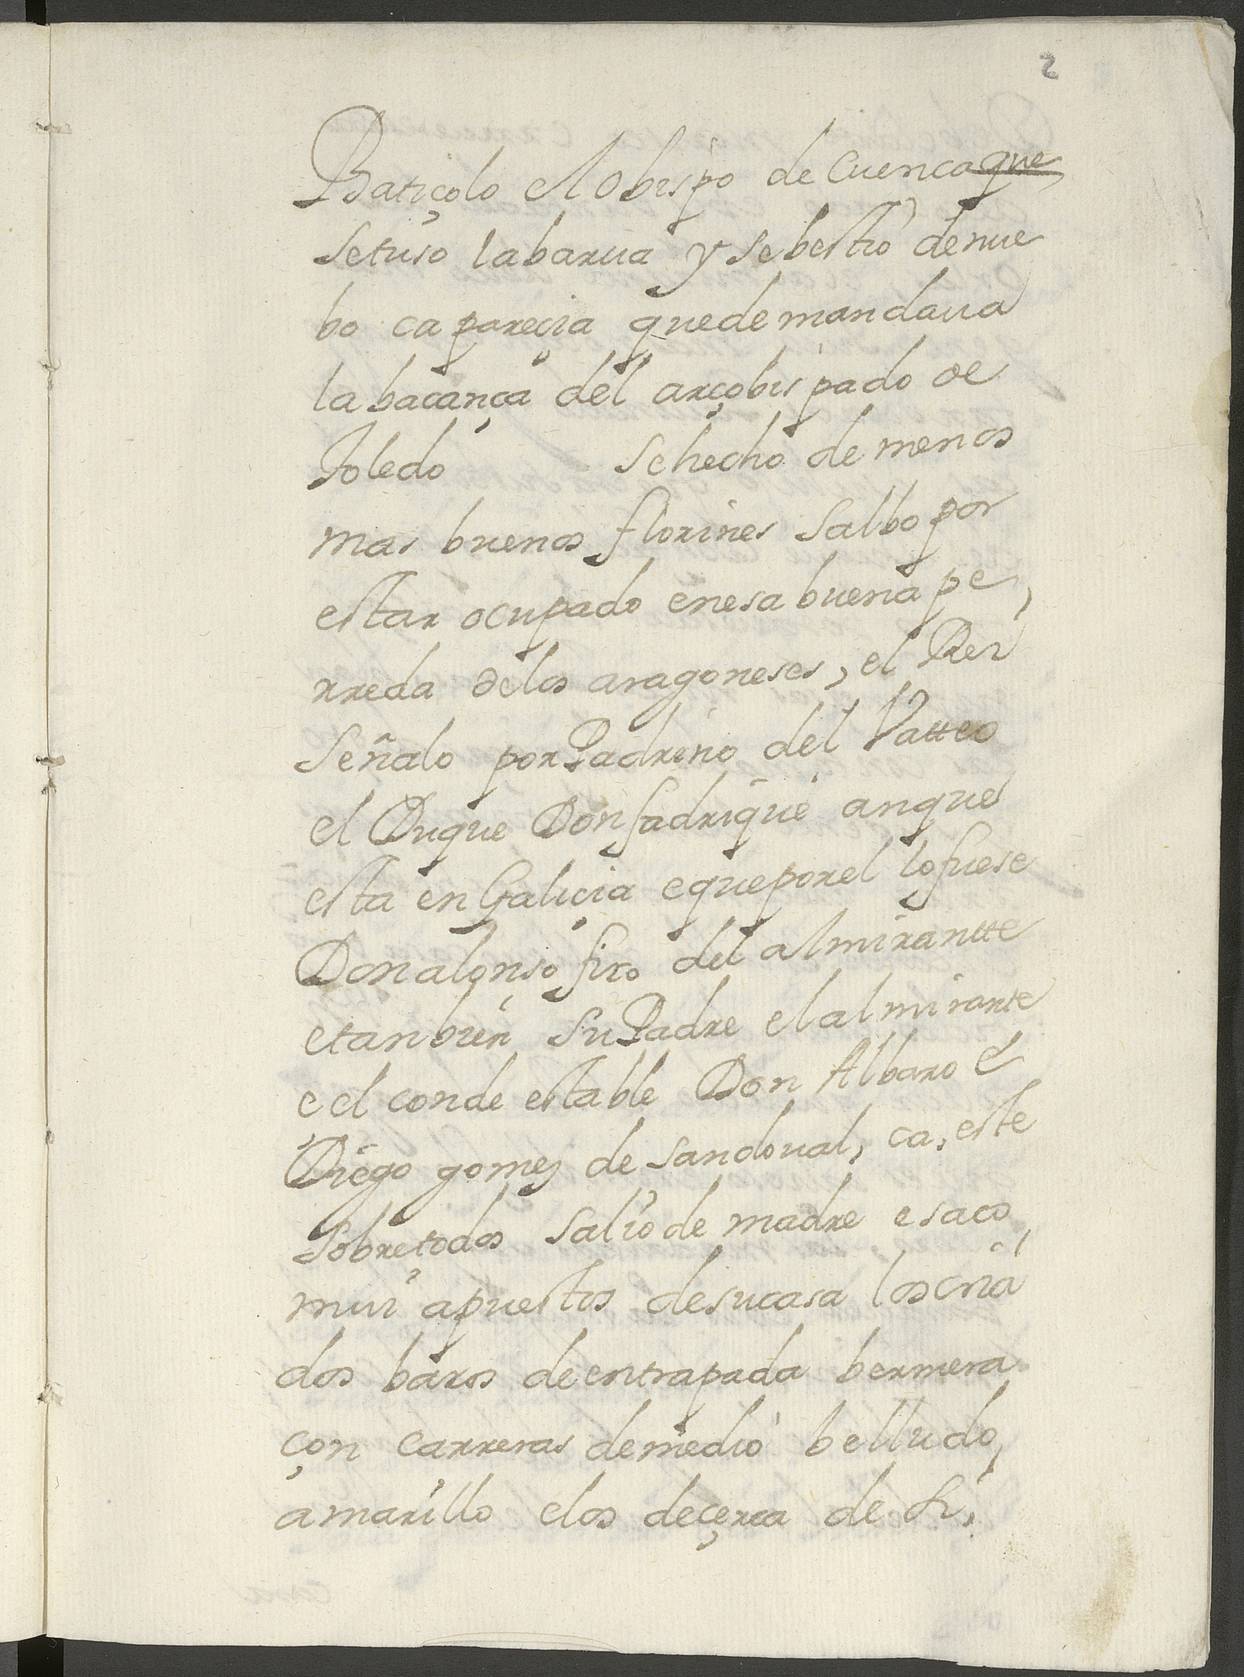 2
Batiçolo el obispo de Cuenca que
se tuso la barua y se bestio de nue
bo ca parecia que demandaua
la bacança del arçobispado de
Toledo se hecho de menos
mas buenos florines salbo por
estar ocupado en esa buena pe
rreda de los aragoneses, el Rei
señalo por Padrino del Vatteo
el Duque Don fadrique anque
esta en Galicia e que por el lo fuese
Don alonso fixo del almirantte
e tanbien su Padre el almirante
e el conde estable Don Albaro é
Diego gomez de sandoual, ca, este
sobre todos salio de madre e saco
mui apuestos de su casa los cria
dos baxos de entrapada bermexa
çon carreras de medio belludo
amarillo e los de çerca de si,